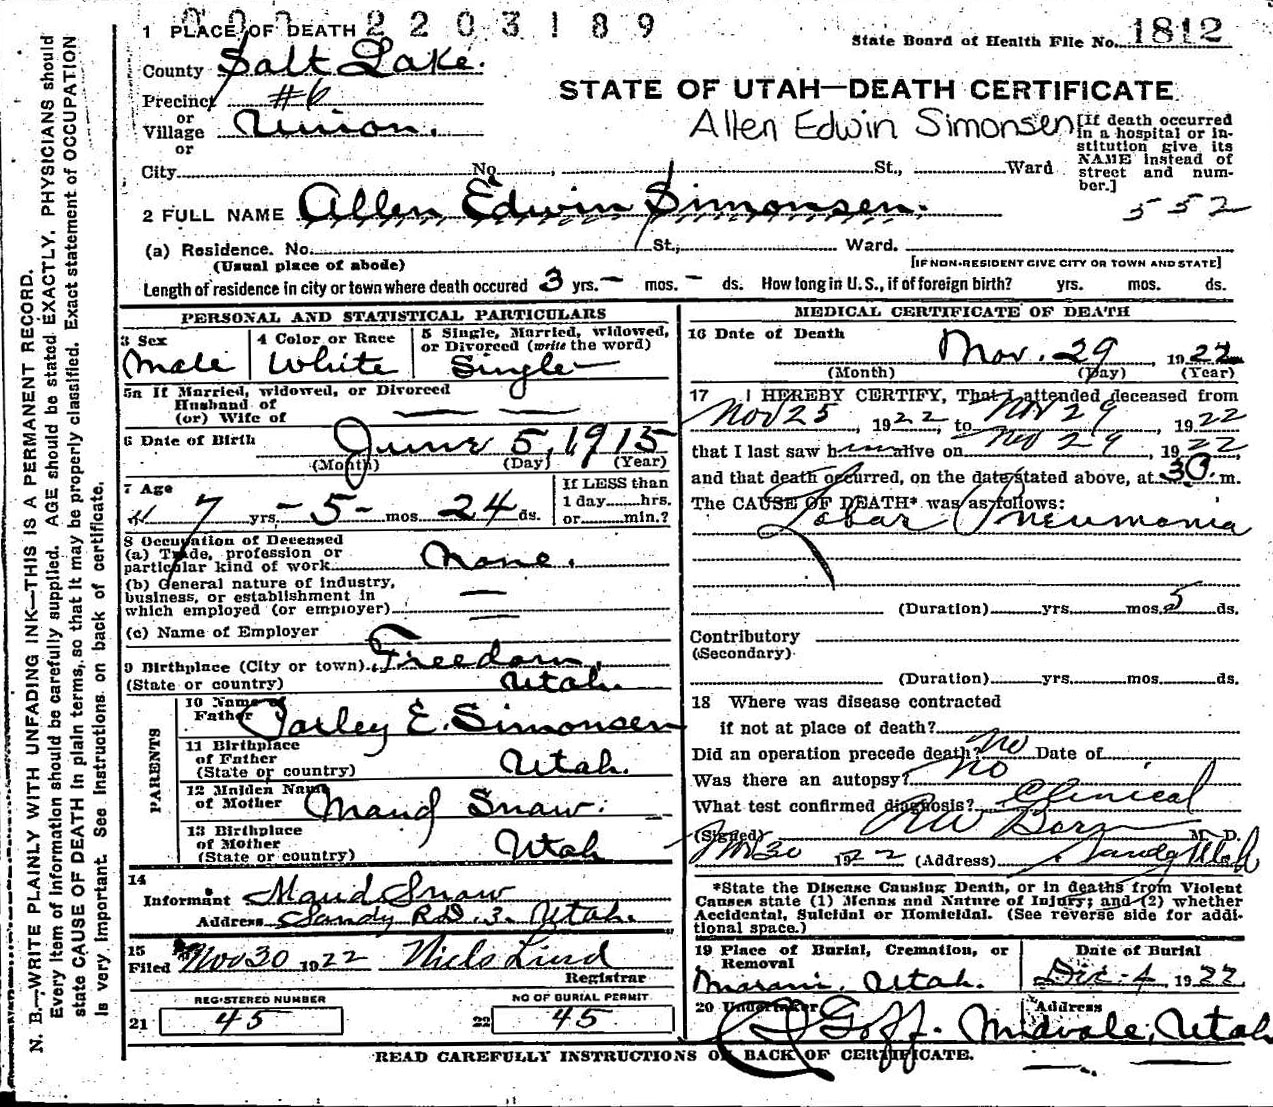 2203189
1 PLACE OF DEATH
State Board of Health File No. 1812
County Salt Lake.
STATE OF UTAH—DEATH CERTIFICATE
Precinct #6
or
Village Union.
or
Allen Edwin Simonsen
[If death occurred in a hospital or institution give its NAME instead of street and number.]
City No. St., Ward
2 FULL NAME Allen Edwin Simonsen.
552
(a) Residence. No. St., Ward.
(Usual place of abode)
[IF NON-RESIDENT GIVE CITY OR TOWN AND STATE]
Length of residence in city or town where death occured 3 yrs. — mos. — ds. How long in U. S., if of foreign birth? yrs. mos. ds.
PERSONAL AND STATISTICAL PARTICULARS
3 Sex
Male
4 Color or Race
White
5 Single, Married, widowed,
or Divorced (write the word)
Single
5a If Married, widowed, or Divorced
Husband of
(or) Wife of
6 Date of Birth June 5, 1915
(Month) (Day) (Year)
7 Age
7 yrs. -5- mos. 24 ds.
If LESS than
1 day hrs.
or min.?
8 Occupation of Deceased
(a) Trade, profession or
particular kind of work None.
(b) General nature of industry,
business, or establishment in
which employed (or employer)
(c) Name of Employer
9 Birthplace (City or town) Freedom,
(State or country) Utah.
PARENTS
10 Name of
Father Parley E. Simonsen
11 Birthplace
of Father
(State or country) Utah.
12 Maiden Name
of Mother Maud Snaw.
13 Birthplace
of Mother
(State or country) Utah
14
Informant Maud Snaw
Address Sandy R.D. 3. Utah.
15
Filed Nov 30 1922 Niels Lind
Registrar
REGISTERED NUMBER
21 45
NO OF BURIAL PERMIT
22 45
MEDICAL CERTIFICATE OF DEATH
16 Date of Death Nov. 29, 1922
(Month) (Day) (Year)
17 I HEREBY CERTIFY, That I attended deceased from
Nov 25, 1922, to Nov 29, 1922
that I last saw him alive on Nov 29, 1922,
and that death occurred, on the date stated above, at m.
The CAUSE OF DEATH* was as follows:
Lobar Pneumonia
(Duration) yrs. mos. 5 ds.
Contributory
(Secondary)
(Duration) yrs. mos. ds.
18 Where was disease contracted
if not at place of death?
Did an operation precede death? No Date of
Was there an autopsy? No
What test confirmed diagnosis? Clinical
(Signed) M. D.
Nov 30 1922 (Address) Sandy Utah
*State the Disease Causing Death, or in deaths from Violent
Causes state (1) Means and Nature of Injury; and (2) whether
Accidental, Suicidal or Homicidal. (See reverse side for additional space.)
19 Place of Burial, Cremation, or
Removal
Moroni, Utah.
Date of Burial
Dec-4 1922
20 Undertaker Goff.
Address
Midvale, Utah
READ CAREFULLY INSTRUCTIONS ON BACK OF CERTIFICATE.
N. B.—WRITE PLAINLY WITH UNFADING INK—THIS IS A PERMANENT RECORD.
Every item of information should be carefully supplied. AGE should be stated EXACTLY. PHYSICIANS should
state CAUSE OF DEATH in plain terms, so that it may be properly classified. Exact statement of OCCUPATION
is very important. See instructions on back of certificate.